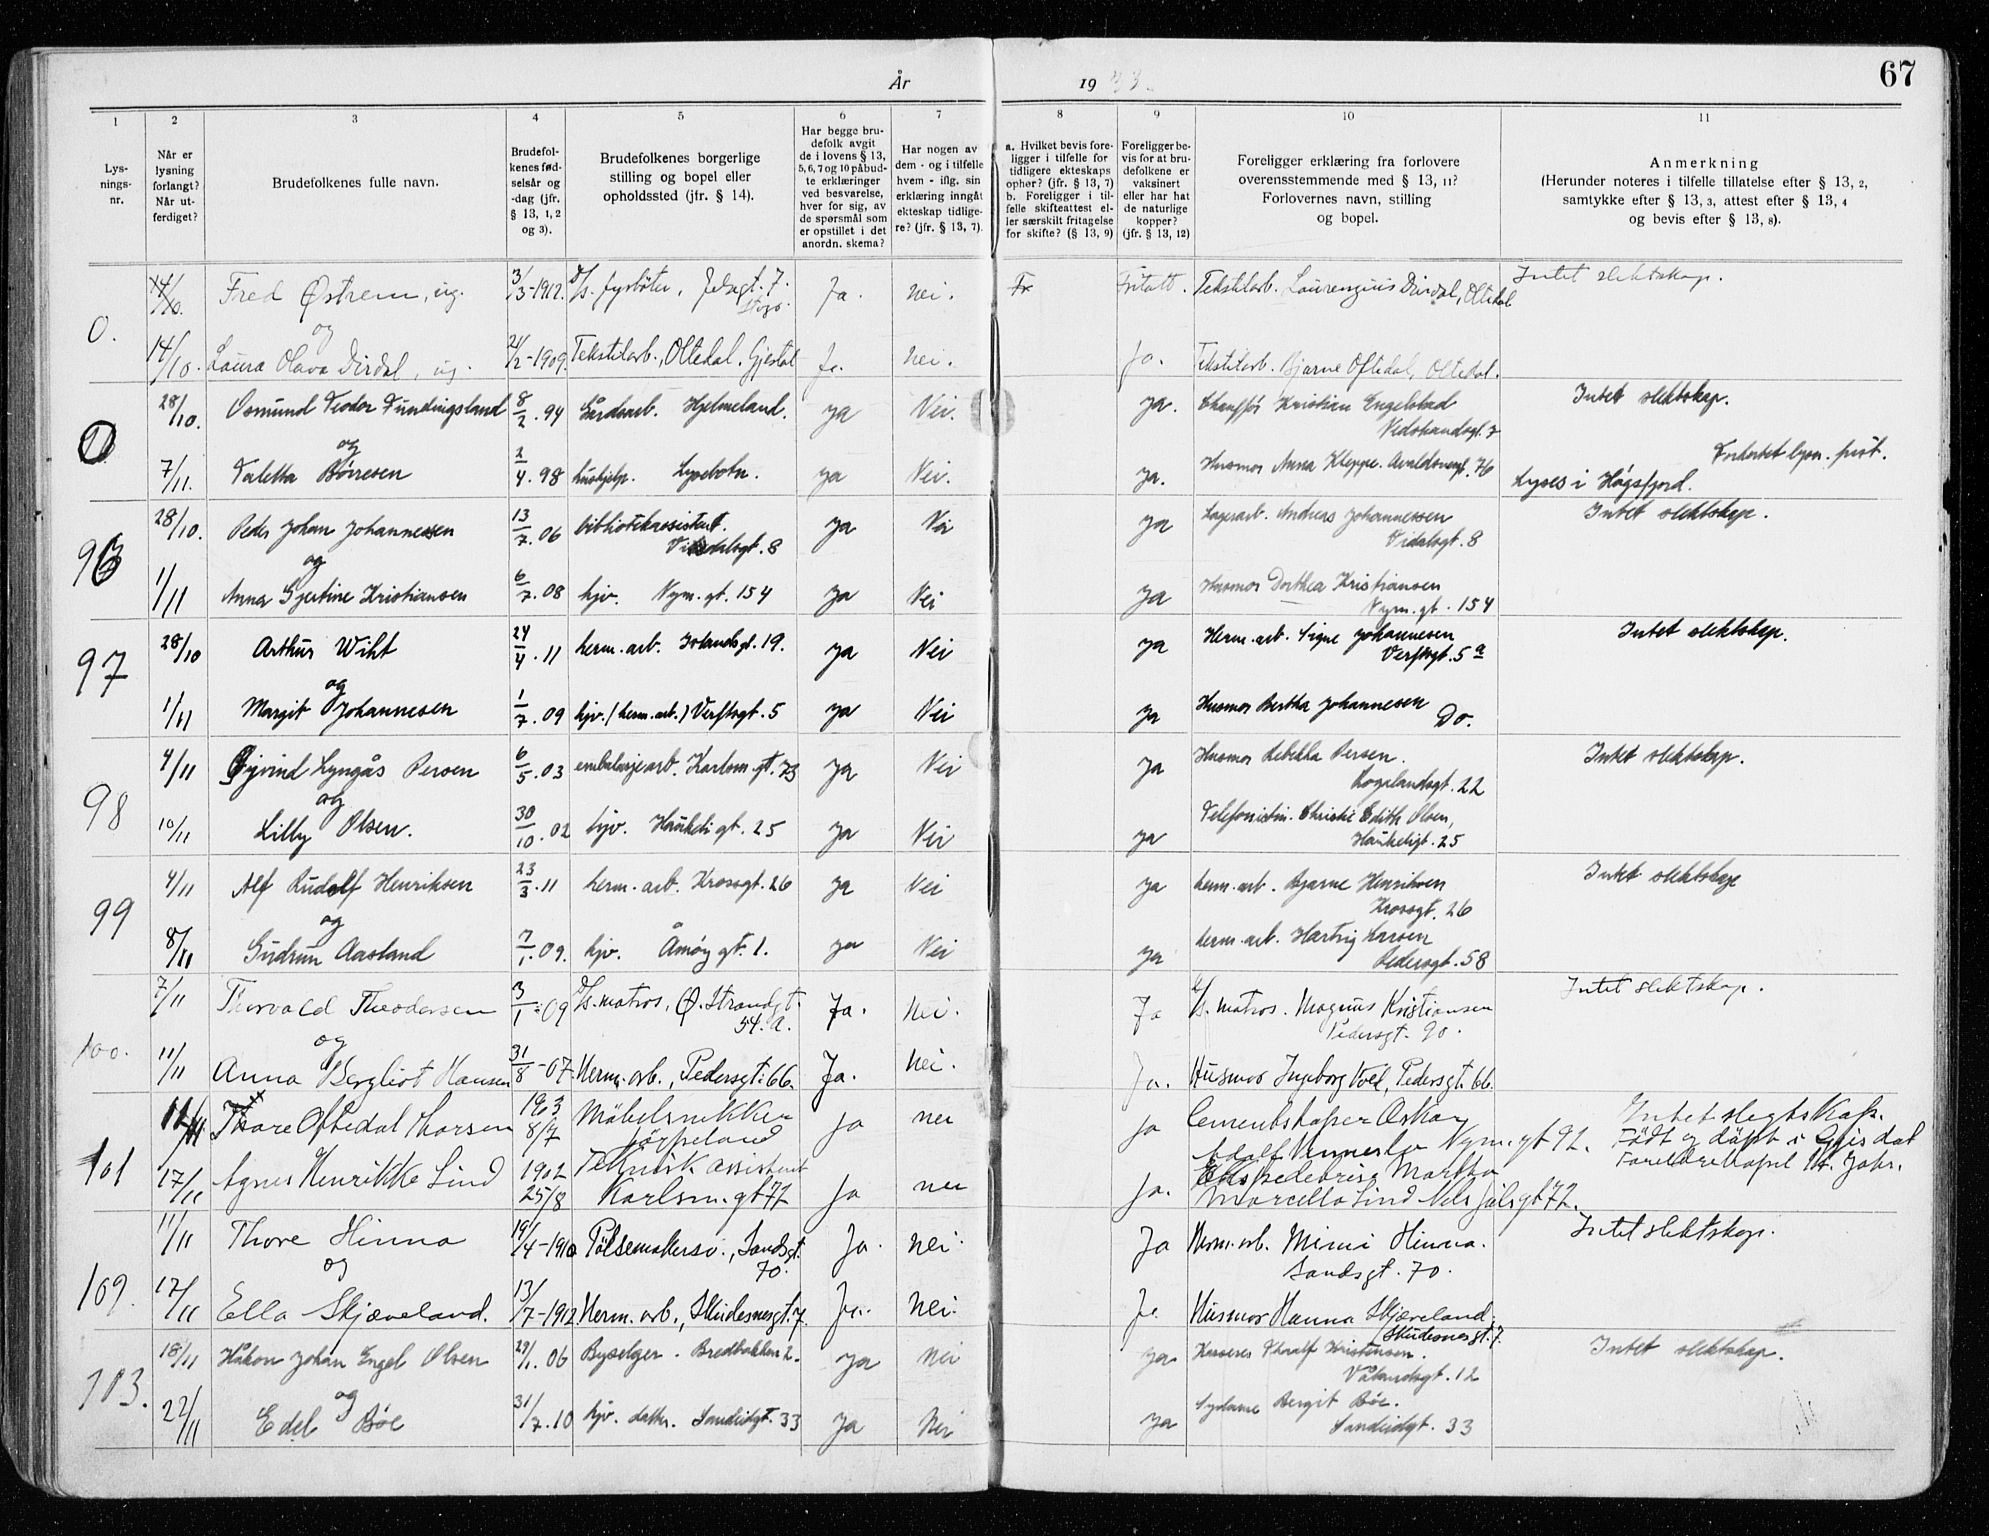 67
År 1933.
1 2 3 4 5 6 7 8 9 10 11
Lys-
nings-
nr.
Når er
lysning
forlangt?
Når ut-
ferdiget?
Brudefolkenes fulle navn.
Brudefol-
kenes fød-
selsår og
-dag (jfr.
§ 13, 1, 2
og 3).
Brudefolkenes borgerlige
stilling og bopel eller
opholdssted (jfr. § 14).
Har begge bru-
defolk avgit
de i lovens § 13,
5, 6, 7 og 10 påbud-
te erklæringer
ved besvarelse,
hver for sig, av
de spørsmål som
er opstillet i det
anordn. skema?
Har nogen av
dem - og i tilfelle
hvem - iflg. sin
erklæring inngåt
ekteskap tidlige-
re? (jfr. § 13, 7).
a. Hvilket bevis fore-
ligger i tilfelle for
tidligere ekteskaps
ophør? (jfr. § 13, 7)
b. Foreligger i til-
felle skifteattest el-
ler særskilt fritagelse
for skifte? (§ 13, 9)
Foreligger be-
vis for at bru-
defolkene er
vaksinert
eller har hat
de naturlige
kopper?
(jfr. § 13, 12)
Foreligger erklæring fra forlovere
overensstemmende med § 13, 11?
Forlovernes navn, stilling
og bopel.
Anmerkning
(Herunder noteres i tilfelle tillatelse efter § 13, 2,
samtykke efter § 13, 3, attest efter § 13, 4
og bevis efter § 13, 8).
0. 14/10. Fred Østrem, ug. 3/3-1912. d/s. fyrbøter, Jelsagt. 7. Ja. Nei. Fritatt. Tekstilarb. Laurenzius Dirdal, Oltedal Intet slektskap.
og
14/10. Laura Olava Dirdal, ug. 24/2-1909. Tekstilarb., Oltedal, Gjestal Ja. Nei. Ja. Tekstilarb. Bjarne Oftedal, Oltedal.
0 28/10. Osmund Teodor Fundingsland 8/2. 94 Gårdsarb. Hjelmeland. ja Nei. ja. Chauffør Kristian Engelstad Intet slektskap.
og Vedstrandsgt. 7
7/11. Taletta Børresen 2/4. 98 hushjelp. Lysebotn. ja Nei. ja. Husmor Anna Kleppe. Avaldsnesgt. 76 Forkortet lysn. frist.
Lyses i Høgsfjord.
96 28/10. Peder Johan Johannessen 13/7. 06 bibliotekassistent. ja Nei ja Lagerarb. Andreas Johannessen Intet slektskap.
Vidalsgt. 8 Vidalsgt. 8
og
1/11 Anna Gjertine Kristiansen 6/7. 08 hjv. Nym. gt. 154 ja Nei ja Husmor Dorthea Kristiansen
Nym. gt. 154
97 28/10 Arthur Wiht 24/4. 11 herm. arb. Jelsandsgt. 19. ja Nei ja Herm. arb. Signe Johannesen Intet slektskap.
Verftsgt. 5 a
og
1/11 Margit Johannesen 1/7. 09 hjv. (herm. arb.) Verftsgt. 5 ja Nei ja Husmor Bertha Johannesen
Do.
98 4/11 Øyvind Lyngås Persen 6/5. 03 embalasjearb. Karlsm. gt. 73 ja Nei ja Husmor Rebekka Persen. Intet slektskap.
Rogalandsgt. 22
og
10/11 Lilly Olsen. 30/10. 02 hjv. Haukeligt. 25 ja Nei ja Telefonistin. Christie Edith Olsen,
Haukeligt. 25
99 4/11 Alf Rudolf Henriksen 23/3. 11 herm. arb. Krossgt. 26 ja Nei ja herm. arb. Bjarne Henriksen Intet slektskap
Krossgt. 26
og
8/11 Gudrun Aasland 7/1. 09. hjv. Åmøygt. 1. ja Nei ja herm. arb. Hartvig Larsen
Pedersgt. 58
100. 7/11 Thorvald Theodorsen 3/1-09 d/s. matros, Ø. Strandgt. Ja. Nei. Ja d/s. matros. Magnus Kristiansen Intet slektskap.
54. A. Pedersgt. 90.
og
11/11 Anna Bergliot Hansen 31/8-07. Herm. arb., Pedersgt. 66. Ja. Nei. Ja. Husmor Ingeborg Voll, Pedersgt. 66.
101 11/11 Thore Oftedal Thorsen 1903 8/7 Møbelsnekker ja nei ja Cementstøper Oskar Intet slegtskap.
Jørpeland Adolf Nym. gt 92. Født og døpt i Gjesdal
17/11 Agnes Henrikke Lind 1902 25/8 Teknisk assistent ja nei ja. Ekspeditrise Martha
Karlsm. gt 72 Marcella Lind Nils Juls gt 72.
102. 11/11 Thore Hinna 19/4-1910 Pølsemakersv., Sandsgt. Ja. Nei. Ja Herm. arb. Mimi Hinna. Intet slektskap.
70. Sandsgt. 70.
og
17/11 Ella Skjæveland. 13/7-1912. Herm. arb., Skudesnesgt. 7. Ja. Nei. Ja. Husmor Hanna Skjæveland.
Skudesnesgt. 7.
103. 18/11 Håkon Johan Engel Olsen 29/1. 06 Byselger. Bredbakken 2. ja Nei ja Kasserer Thoralf Kristensen. Intet slektskap.
Vålandsgt. 12
og
22/11 Edel Bøe 31/7. 10 hjv. datter. Sandeidgt. 33 ja Nei ja Sydame Bergit Bøe.
Sandeidgt. 33